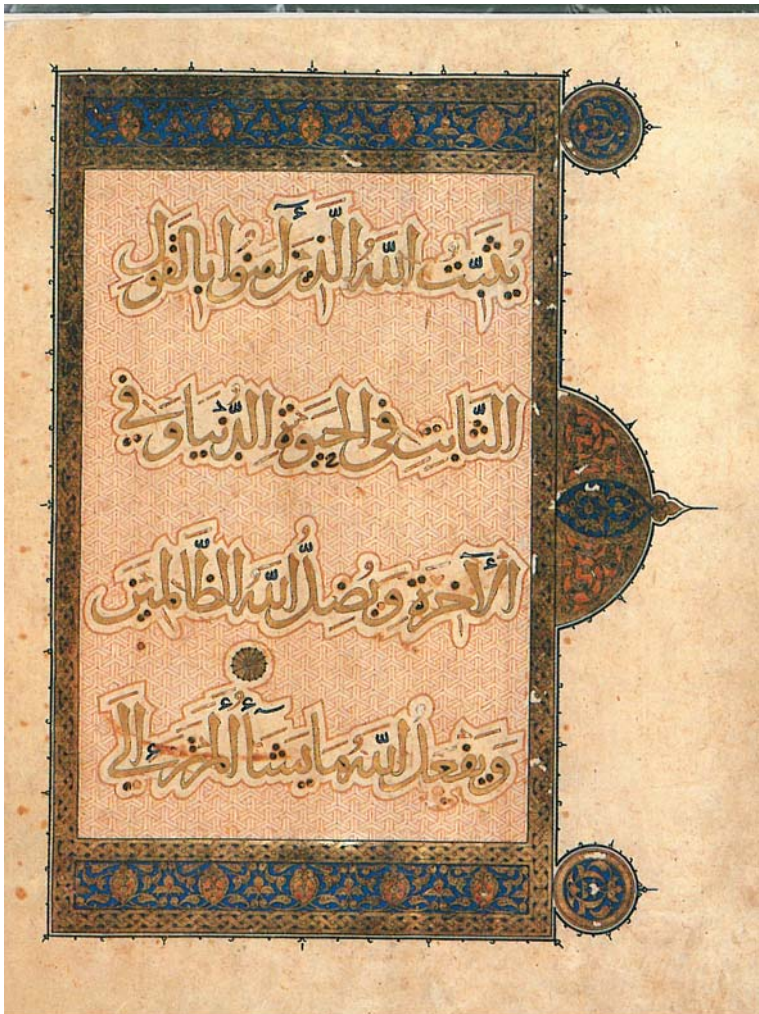 يُثَبِّتُ اللهُ الَّذِينَ آمَنُوا بِالْقَوْلِ
الثَّابِتِ فِي الْحَيَوةِ الدُّنْيَا وَفِي
الْآخِرَةِ وَيُضِلُّ اللهُ الظَّالِمِينَ
وَيَفْعَلُ اللهُ مَا يَشَآءُ أَلَمْ تَرَ إِلَى